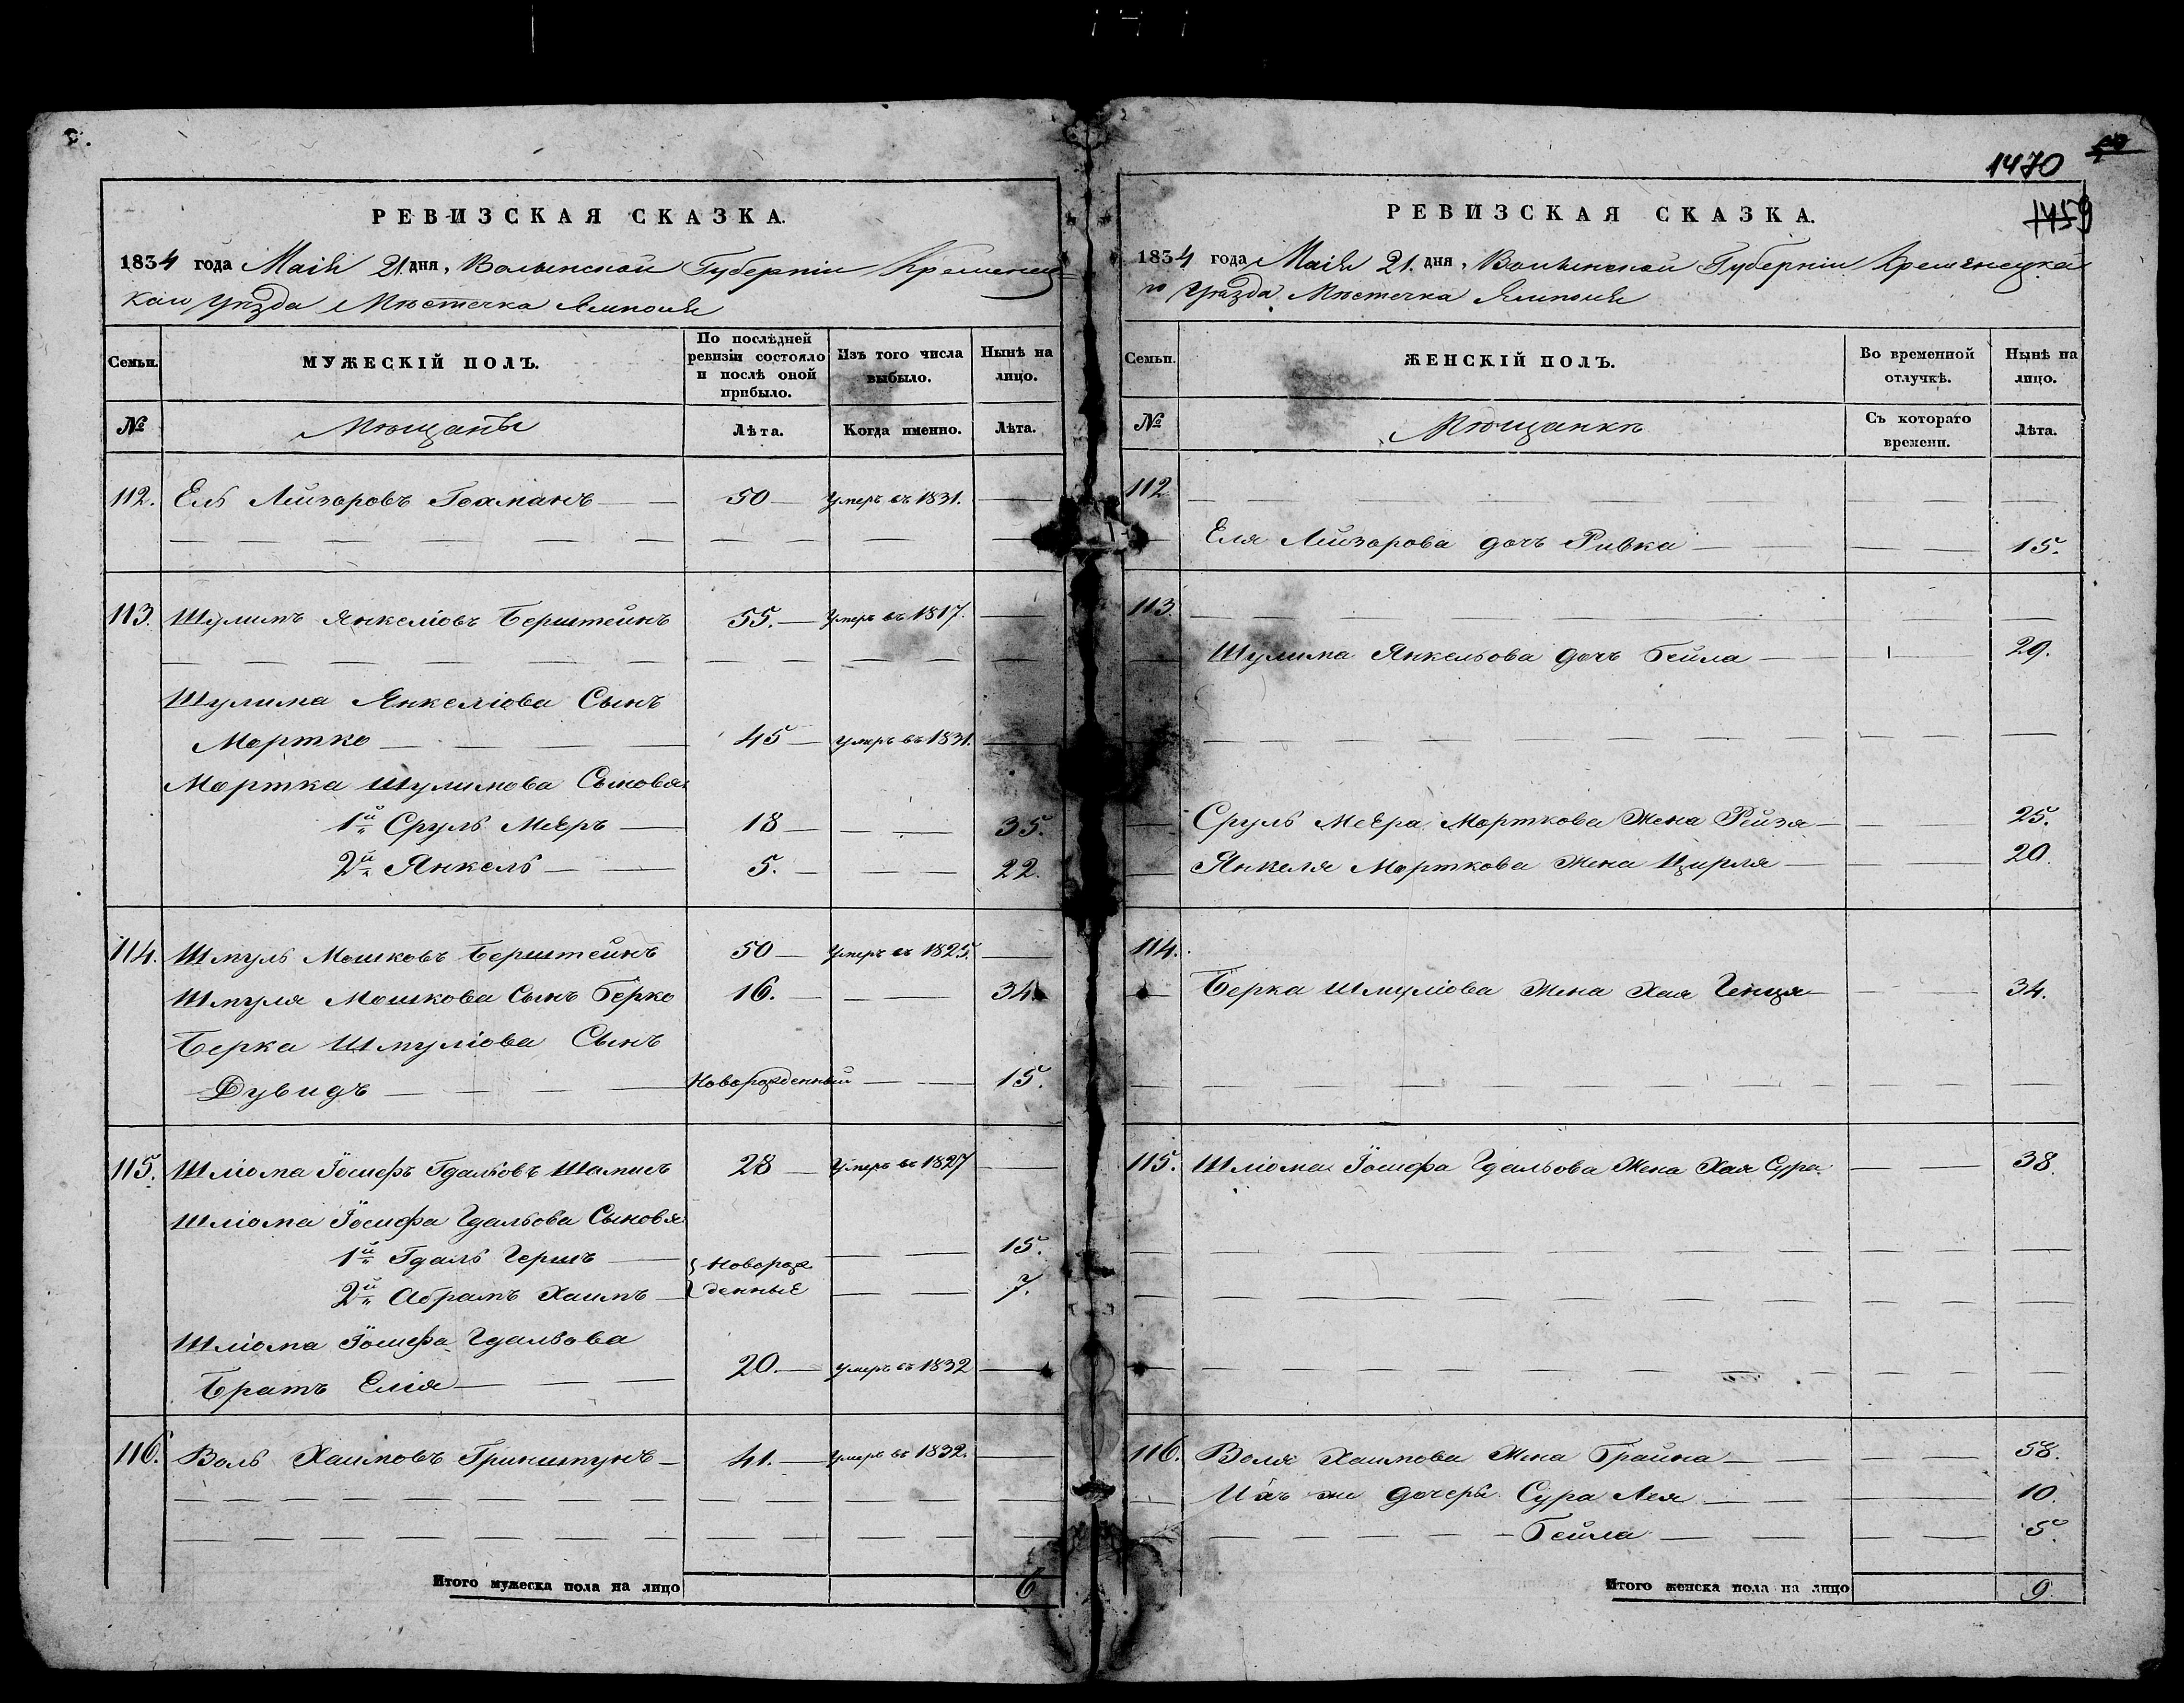 1470
1459
РЕВИЗСКАЯ СКАЗКА.
1834 года Маія 21 дня, Волынской Губерніи Кременец-
кои уѣзда Мѣстечка Ямполя
Семьи.
МУЖЕСКІЙ ПОЛЪ.
По послѣдней ревизіи состояло и послѣ оной прибыло.
Изъ того числа выбыло.
Нынѣ на лицо.
№
Мѣщанѣ
Лѣта.
Когда именно.
Лѣта.
112. Ель Лейзоровъ Гохманъ 50 умеръ въ 1831.
113. Шулимъ Янкеліовъ Берштейнъ 55. умеръ въ 1817.
Шулима Янкеліова Сынъ
Мортко 45 умеръ въ 1831.
Мортка Шулимова Сыновья
1й Сруль Мееръ 18 35.
2й Янкель 5. 22.
114. Шмуль Мошковъ Берштейнъ 50 умеръ въ 1825.
Шмуля Мошкова Сынъ Берко 16. 34.
Берка Шмуліова Сынъ
Дувидъ Новорожденный 15.
115. Шліома Іосифъ Гдальовъ Шамисъ 28 умеръ въ 1827
Шліома Іосифа Гдальова Сыновя
1й Гдаль Гершъ Новорож 15.
2й Абрамъ Хаимъ денные 7.
Шліома Іосифа Гдальова
Братъ Еліа 20. умеръ въ 1832
116. Воль Хаимовъ Грикштунъ 41. умеръ въ 1832.
Итого мужеска пола на лицо 6
РЕВИЗСКАЯ СКАЗКА.
1834 года Маія 21. дня, Волынской Губерніи Кременецка
го Уѣзда Мѣстечка Ямполя
Семьи.
ЖЕНСКІЙ ПОЛЪ.
Во временной отлучкѣ.
Нынѣ на лицо.
№
Мѣщанки
Съ котораго времени.
Лѣта.
112
Еля Лейзорова дочь Ривка 15.
113.
Шулима Янкельова дочь Бейла 29.
Сруль Меера Морткова Жена Рейзя 25.
Янкеля Морткова Жена Цирля 20.
114.
Берка Шмуліова Жена Хая Генця 34.
115. Шліома Іосифа Гдальова Жена Хая Сура 38.
116. Воля Хаимова Жена Грайна 58.
Ихъ же дочери Сура Лея 10.
Бейла 5.
Итого женска пола на лицо 9.